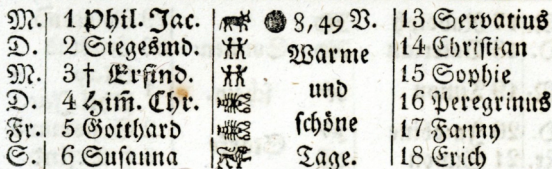 M. 1 Phil. Jac. 8, 49 V. 13 Servatius
D. 2 Siegesmd. Warme 14 Christian
M. 3 † Erfind. und 15 Sophie
D. 4 Him̃. Chr. schöne 16 Peregrinus
Fr. 5 Gotthard Tage. 17 Fanny
S. 6 Susanna 18 Erich